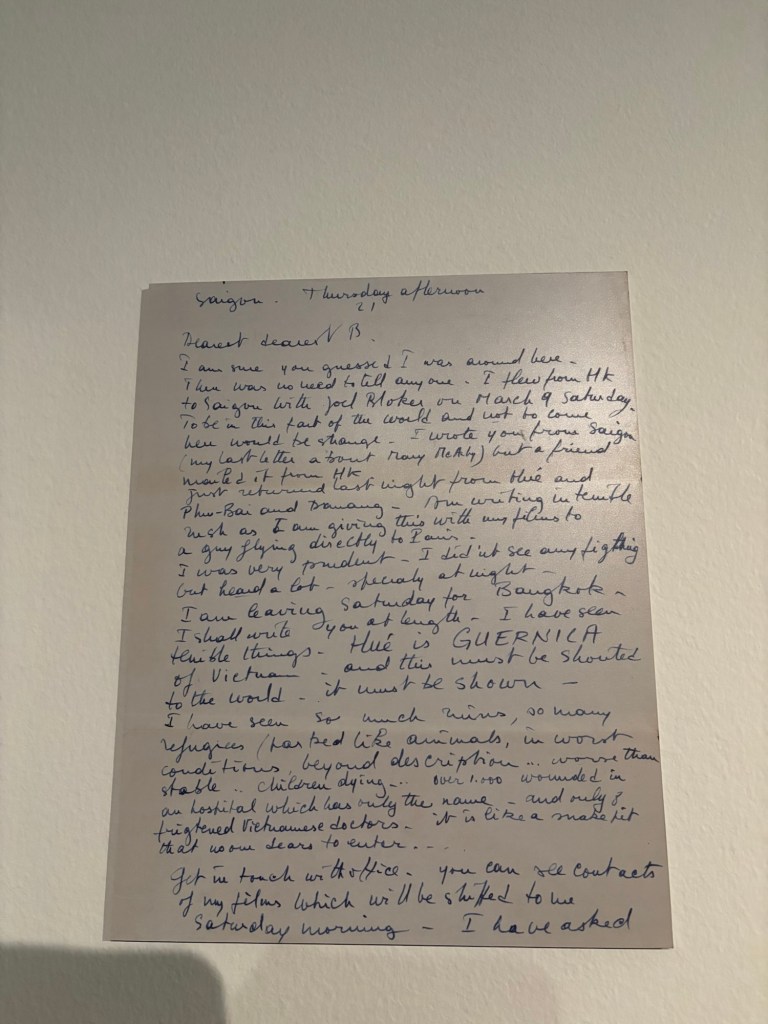 Saigon. Thursday afternoon
21
Dearest dearest B.
I am sure you guessed I was around here -
There was no need to tell anyone - I flew from HK
to Saigon with Joel Blocker on March 9 Saturday.
To be in this part of the world and not to come
here would be strange - I wrote you from Saigon
(my last letter about Mary McArthy) but a friend
mailed it from HK
Just returned last night from Hué and
Phu-Bai and Danang - Am writing in terrible
rush as I am giving this with my films to
a guy flying directly to Paris -
I was very prudent - I did'nt see any figthing
but heard a lot - specialy at night -
I am leaving Saturday for Bangkok -
I shall write you at length - I have seen
terrible things - Hué is GUERNICA
of Vietnam - and this must be shouted
to the world - it must be shown -
I have seen so much ruins, so many
refugees (parked like animals, in worst
conditions, beyond description ... worse than
stable .. children dying ... over 1.000 wounded in
an hospital which has only the name - and only 8
frigtened Vietnamese doctors - it is like a snake pit
that no one dears to enter ...
Get in touch with office - you can see contacts
of my films which will be shipped to me
Saturday morning - I have asked